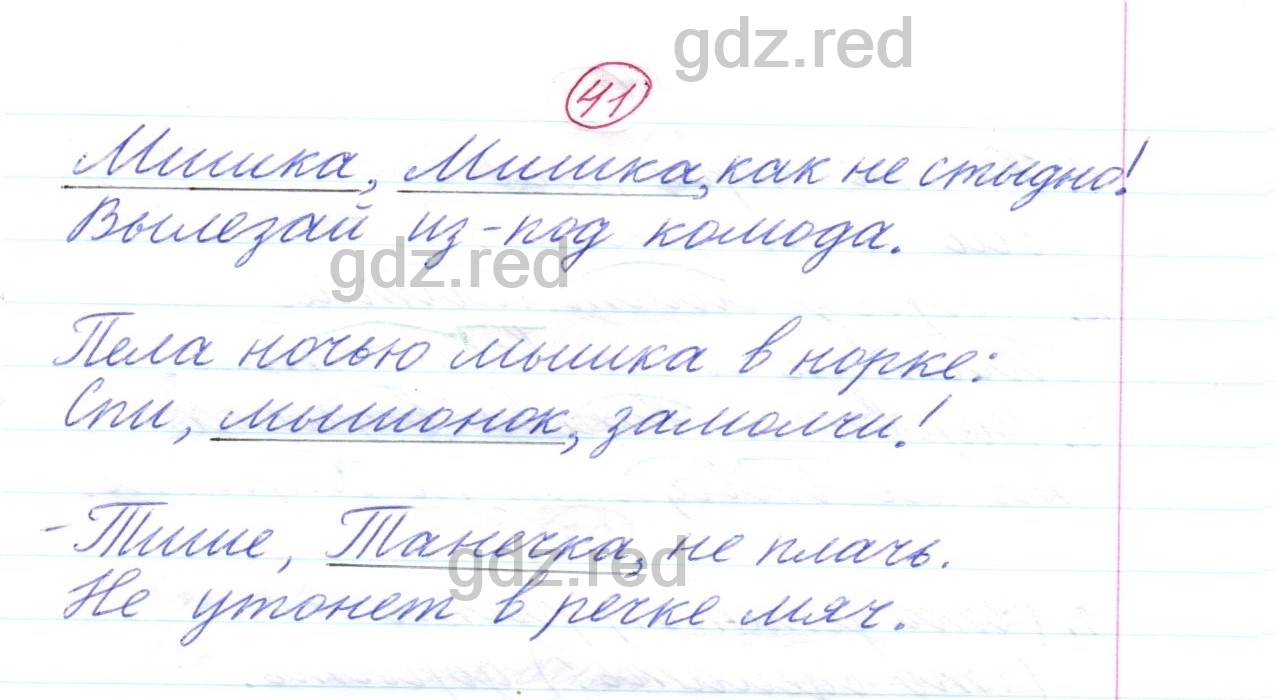 gdz.red
41
Мишка, Мишка, как не стыдно!
Вылезай из-под комода.
gdz.red
Пела ночью мышка в норке:
Спи, мышонок, замолчи!
- Тише, Танечка, не плачь.
gdz.red
Не утонет в речке мяч.